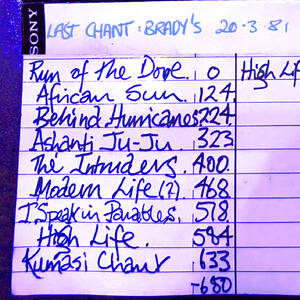 SONY
LAST CHANT: BRADY'S 20·3·81
Run of the Dove. 0 High Lif
African Sun. 124
Behind Hurricanes 224
Ashanti Ju-Ju. 323
The Intruders. 400.
Modern Life (?) 468
I Speak in Parables. 518
High Life. 584
Kumasi Chant 633
-680